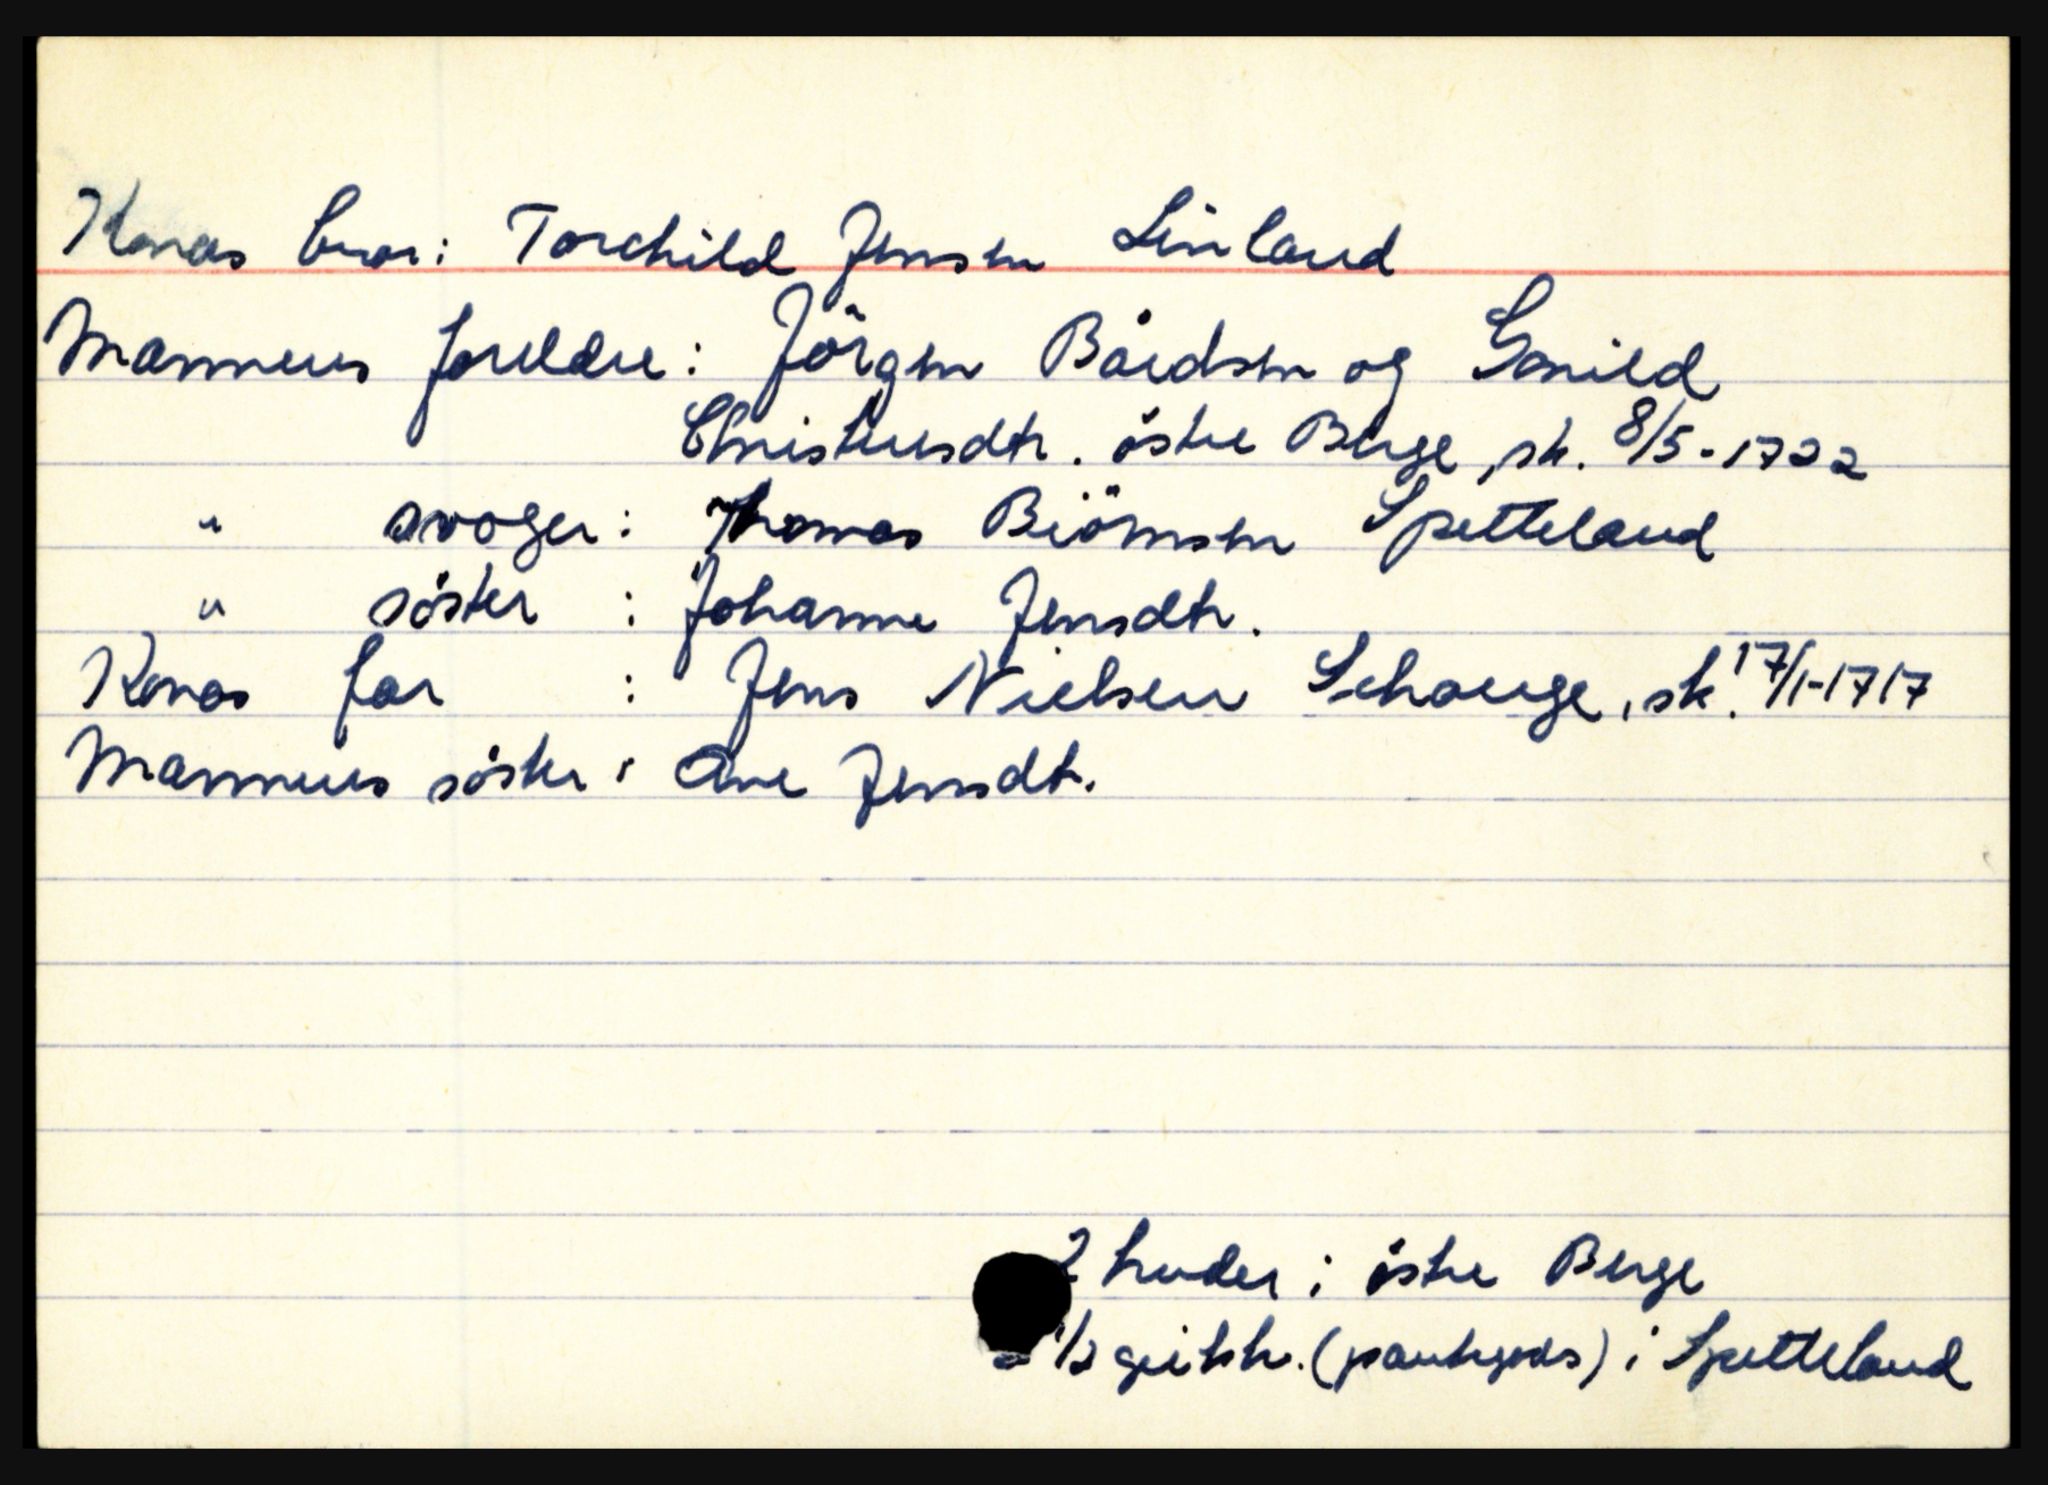 Konas bror: Torchild Jensen Linland
Mannens foreldre: Jörgen Bårdsen og Gonild
Christensdtr. östre Berge, sk. 8/5-1722
" svoger: Thomas Biörnsen Spetteland
" söster : Johanne Jensdtr.
Konas far : Jens Nielsen Schouge, sk. 17/1-1717
Mannens söster: Ane Jensdtr.
2 huder i östre Berge
1/2 geitsk. (pantegods) i Spetteland